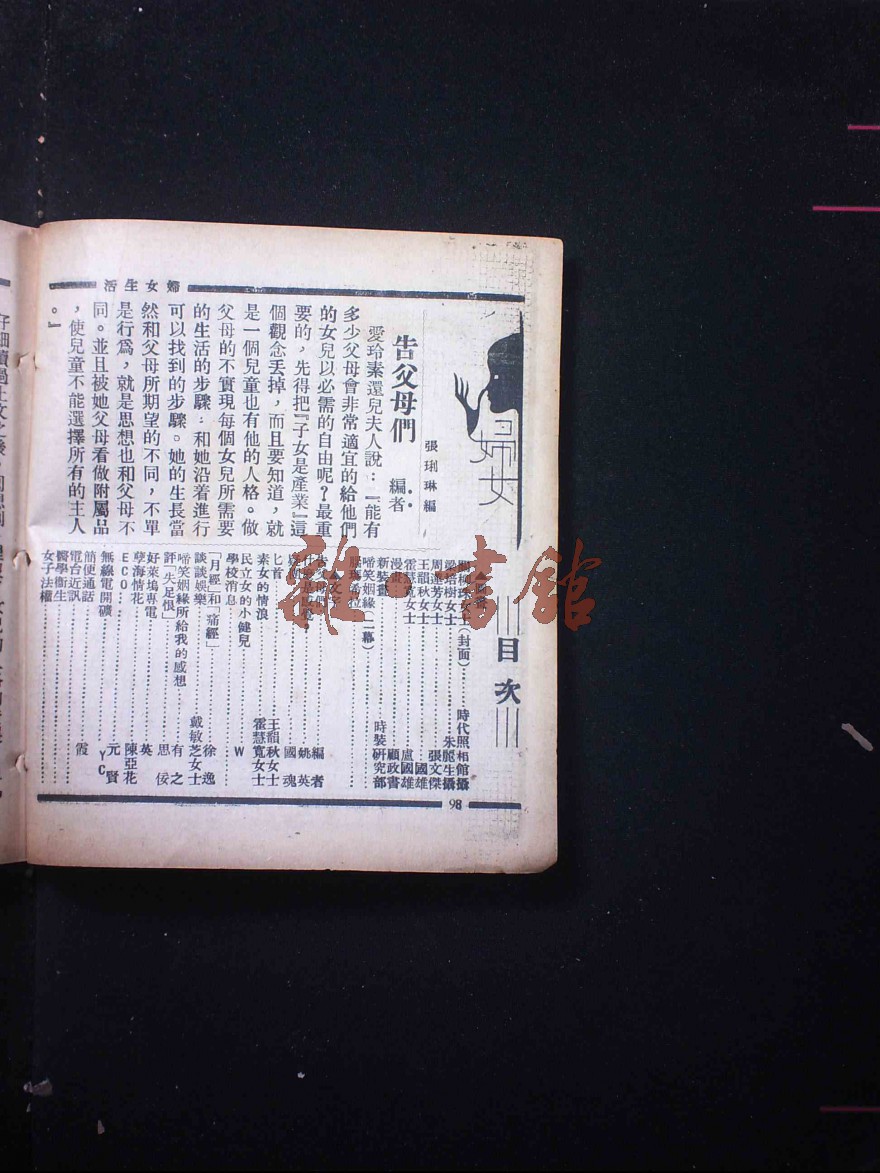 婦女生活
婦女
張琍琳編
告父母們
編者
愛玲素還兒夫人說：『能有
多少父母會非常適宜的給他們
的女兒以必需的自由呢？最重
要的，先得把『子女是產業』這
個觀念丟掉，而且要知道，就
是一個兒童也有他的人格。做
父母的不實現每個女兒所需要
的生活的步驟；和她沿着進行
可以找到的步驟。她的生長當
然和父母所期望的不同，不單
是行爲，就是思想也和父母不
同。並且被她父母看做附屬品
，使兒童不能選擇所有的主人
。』
目次
女士（封面）……時代照相館攝
梁培樹女士……朱順生攝
周連芳女士……張文傑
王韻秋女士……國雄
霍慧寬女士……盧國雄
漫畫……顧政書
新裝畫……時裝研究部
啼笑姻緣（一幕）……
……編者
……姚英
……國魂
匕首……王韻秋女士
素女的情浪……霍慧寬女士
民立女的小健兒……
學校消息……W
「月經」和「痛經」……徐逸
談談娛樂……戴敏芝女士
啼笑姻緣所給我的感想……有之
評「失足恨」……思佞
好萊塢專電……英
孽海情花……陳亞花
ECO……元賢
無線電開礦……YC
簡便通話……
電台近訊……霞
醫學衞生……
女子法權……
98
雜·書館